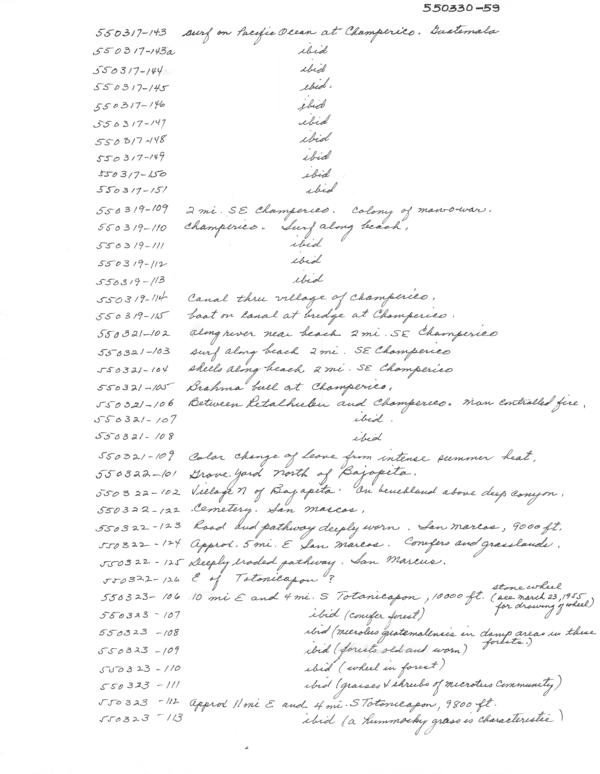 550330-59
550317-143 surf on Pacific Ocean at Champerico. Guatemala
550317-143a ibid
550317-144 ibid
550317-145 ibid.
550317-146 ibid
550317-147 ibid
550317-148 ibid
550317-149 ibid
550317-150 ibid
550317-151 ibid
550319-109 2 mi. SE Champerico. Colony of man-o-war.
550319-110 Champerico. Surf along beach.
550319-111 ibid
550319-112 ibid
550319-113 ibid
550319-114 Canal thru village of Champerico.
550319-115 boat on canal at bridge at Champerico.
550321-102 along river near beach 2 mi. SE Champerico
550321-103 surf along beach 2 mi. SE Champerico
550321-104 shells along beach 2 mi. SE Champerico
550321-105 Brahma bull at Champerico.
550321-106 Between Retalhuleu and Champerico. Man controlled fire.
550321-107 ibid.
550321-108 ibid
550321-109 Color change of leave from intense summer heat.
550322-101 Grave yard North of Bajapita.
550322-102 Village N of Bajapita. On benchland above deep canyon.
550322-122 Cemetery. San Marcos.
550322-123 Road and pathway deeply worn. San Marcos, 9000 ft.
550322-124 Approx. 5 mi. E San Marcos. Conifers and grasslands.
550322-125 Deeply eroded pathway. San Marcus.
550322-126 E of Totonicapon?
550323-106 10 mi E and 4 mi. S Totonicapon, 10000 ft. stone wheel (see March 23, 1955 for drawing of wheel)
550323-107 ibid (conifer forest)
550323-108 ibid (microtus guatemalensis in damp areas in these forests.)
550323-109 ibid (forests old and worn)
550323-110 ibid (wheel in forest)
550323-111 ibid (grasses & shrubs of microtus community)
550323-112 Approx 11 mi E and 4 mi. S Totonicapon, 9800 ft.
550323-113 ibid (a hummocky grass is characteristic)